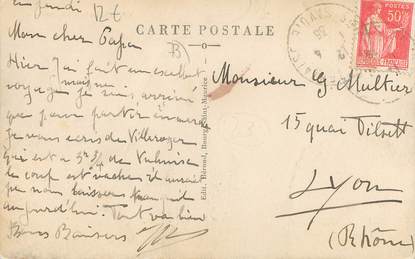 jeudi 12 h
CARTE POSTALE
Mon cher Papa
Hier j'ai fait un excellent
voyage mais je suis arrivé
que pour partir en
je vous écris de Villeroger
qui est a 3h 3/4 de
le
pas nous laisser tranquil
aujourd'hui. Tout va bien
Bons Baisers
Edit. Béroud, Bourg-Saint-Maurice
POSTES
50c
Monsieur G Multier
15 quai Tilsitt
Lyon
(Rhône)